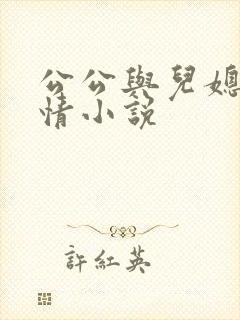 公公與兒媳
情小說
許紅英